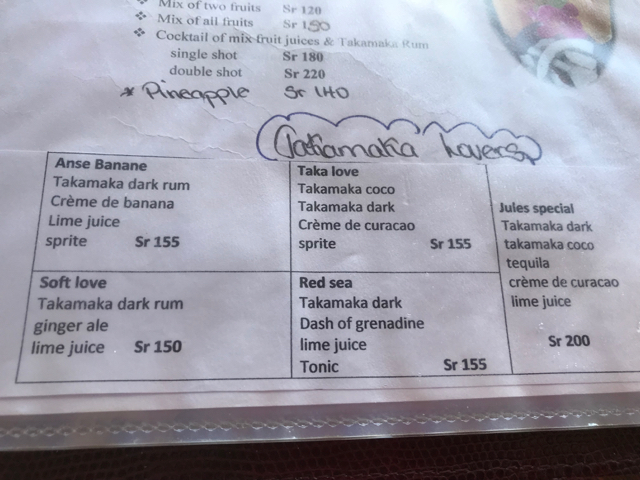 Mix of two fruits Sr 120
Mix of all fruits Sr 150
Cocktail of mix fruit juices & Takamaka Rum
single shot Sr 180
double shot Sr 220
* Pineapple Sr 140
Takamaka Lovers
Anse Banane
Takamaka dark rum
Crème de banana
Lime juice
sprite Sr 155
Taka love
Takamaka coco
Takamaka dark
Crème de curacao
sprite Sr 155
Jules special
Takamaka dark
takamaka coco
tequila
crème de curacao
lime juice
Sr 200
Soft love
Takamaka dark rum
ginger ale
lime juice Sr 150
Red sea
Takamaka dark
Dash of grenadine
lime juice
Tonic Sr 155